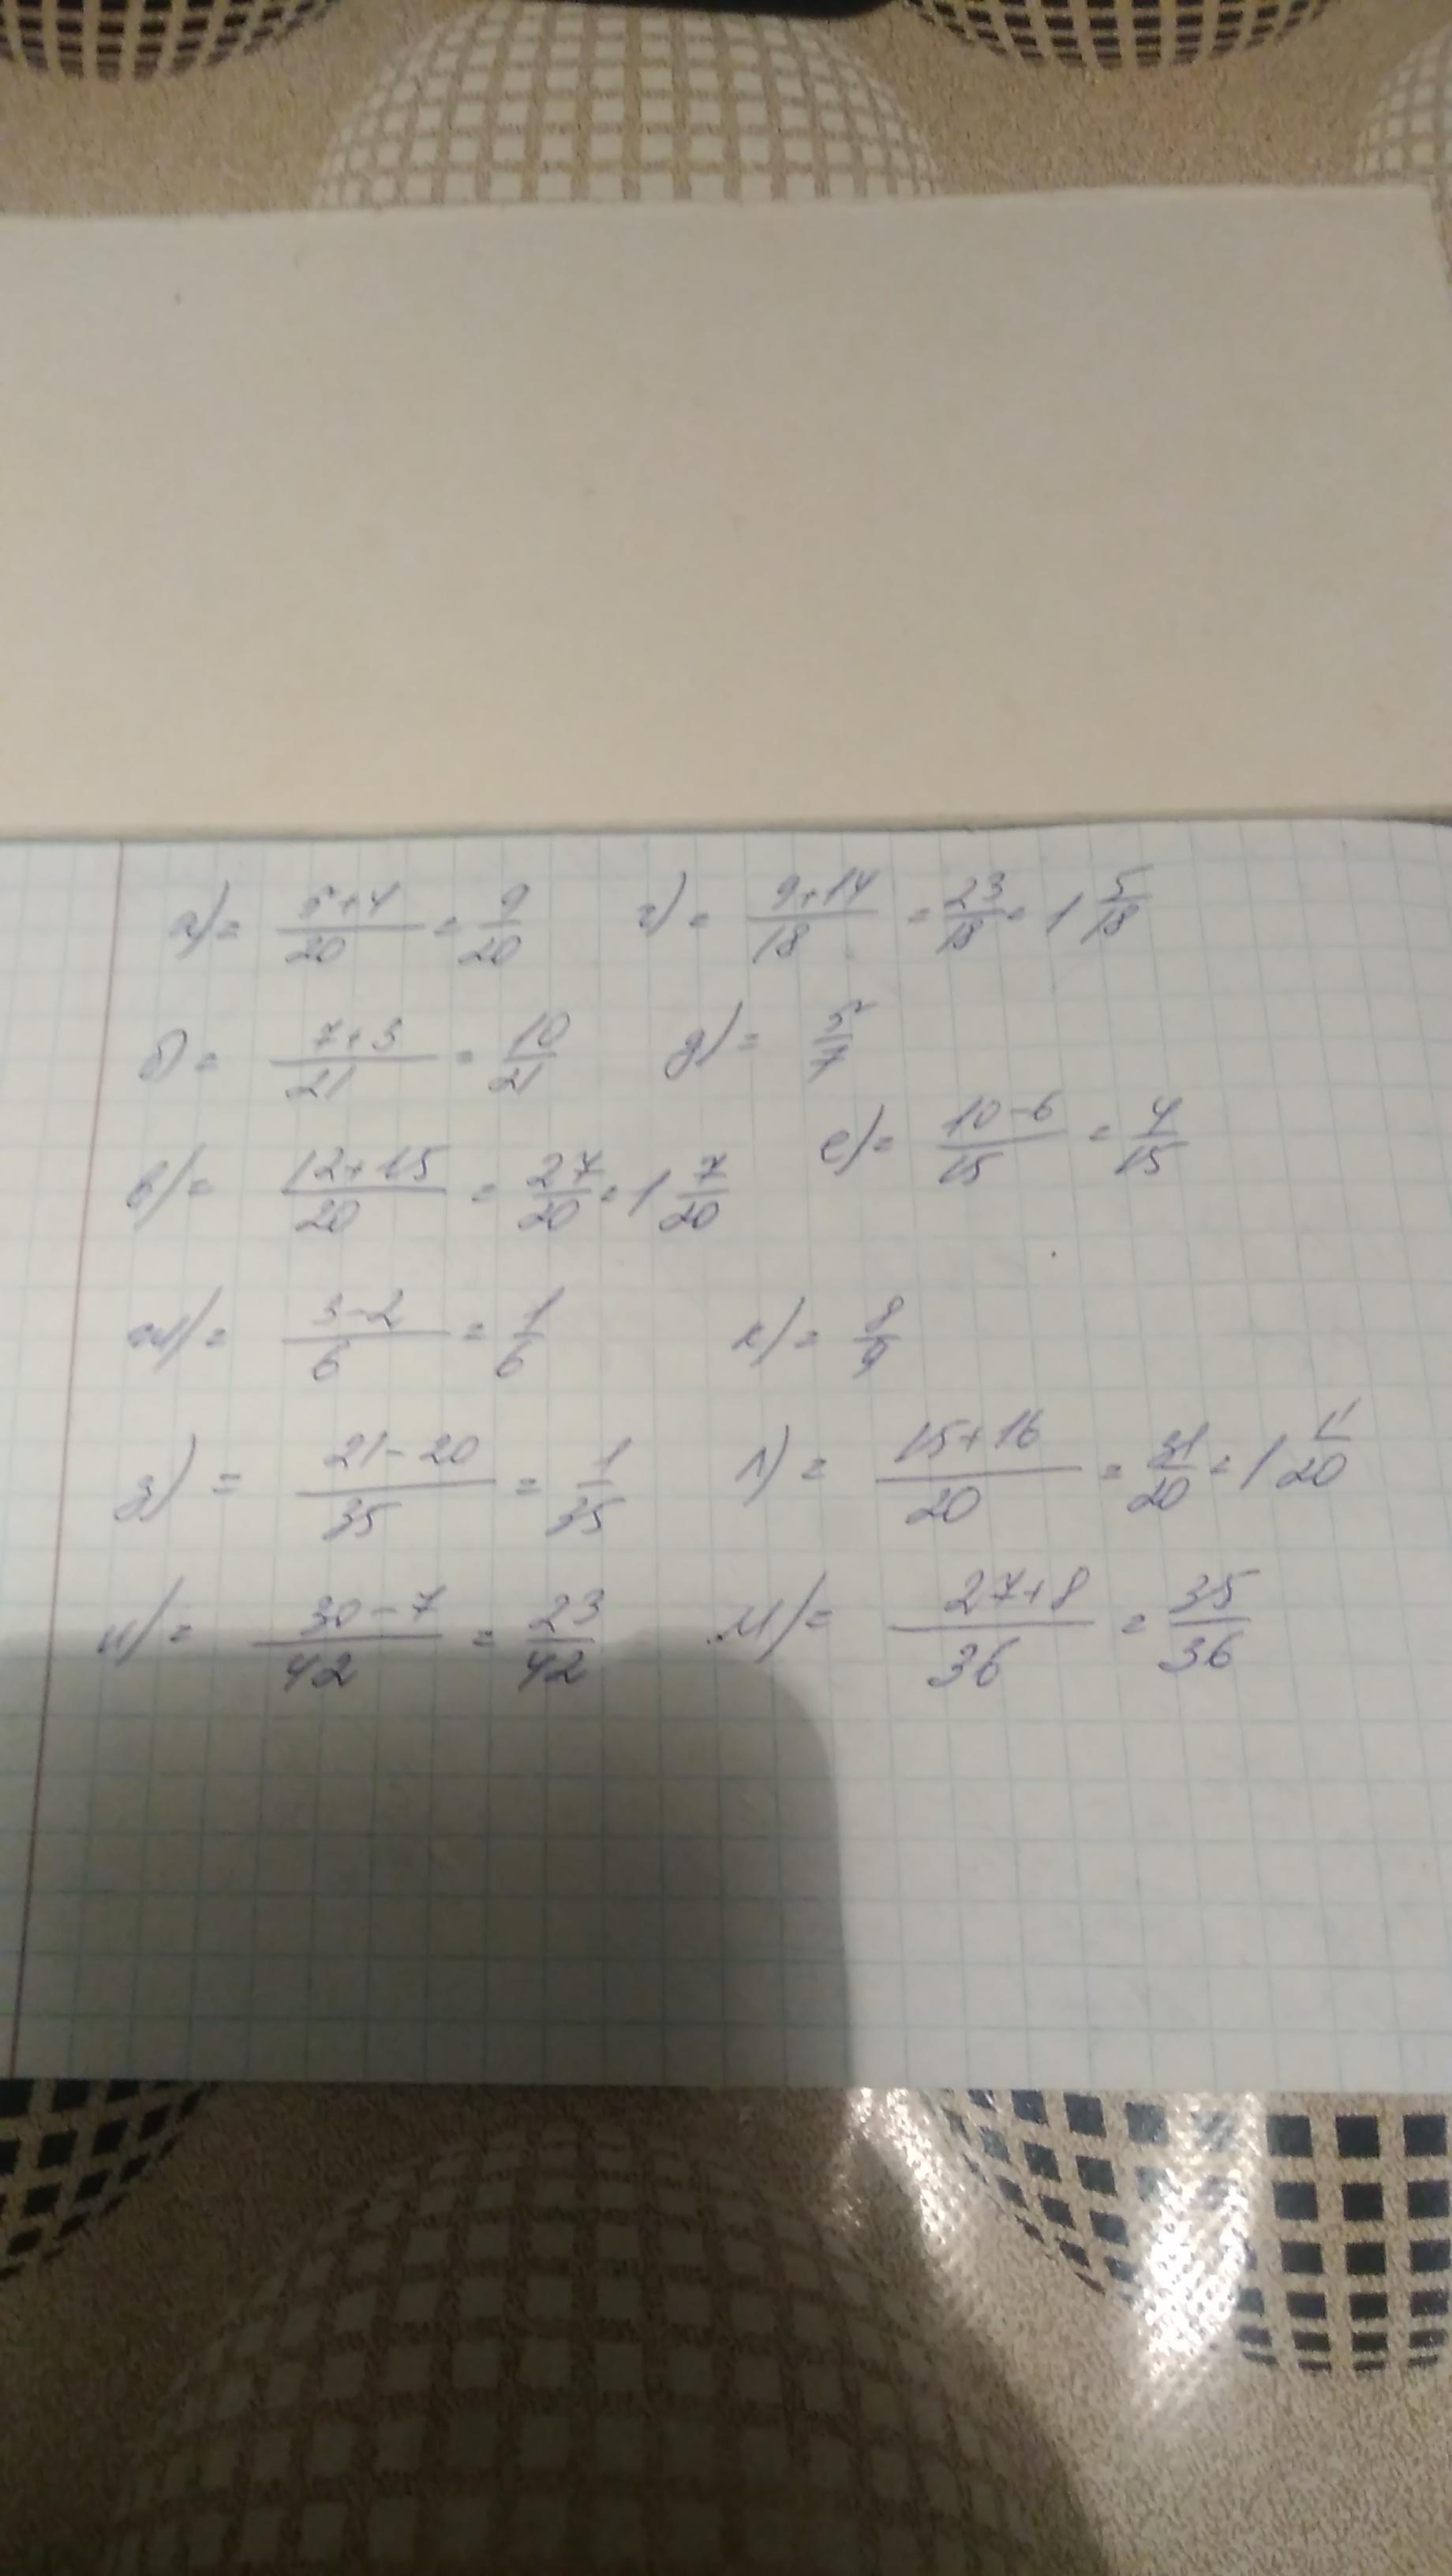 а) = (5+4)/20 = 9/20 г) = (9+14)/18 = 23/18 = 1 5/18
б) = (7+3)/21 = 10/21 д) = 5/7
в) = (12+15)/20 = 27/20 = 1 7/20 е) = (10-6)/15 = 4/15
ж) = (3-2)/6 = 1/6 к) = 8/9
з) = (21-20)/35 = 1/35 л) = (15+16)/20 = 31/20 = 1 11/20
и) = (30-7)/42 = 23/42 м) = (27+8)/36 = 35/36